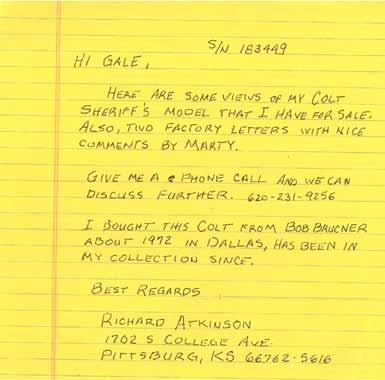 S/N 183449
HI GALE,
HERE ARE SOME VIEWS OF MY COLT
SHERIFF'S MODEL THAT I HAVE FOR SALE.
ALSO, TWO FACTORY LETTERS WITH NICE
COMMENTS BY MARTY.
GIVE ME A PHONE CALL AND WE CAN
DISCUSS FURTHER. 620-231-9256
I BOUGHT THIS COLT FROM BOB BRUCNER
ABOUT 1972 IN DALLAS, HAS BEEN IN
MY COLLECTION SINCE.
BEST REGARDS
RICHARD ATKINSON
1702 S COLLEGE AVE.
PITTSBURG, KS 66762-5616